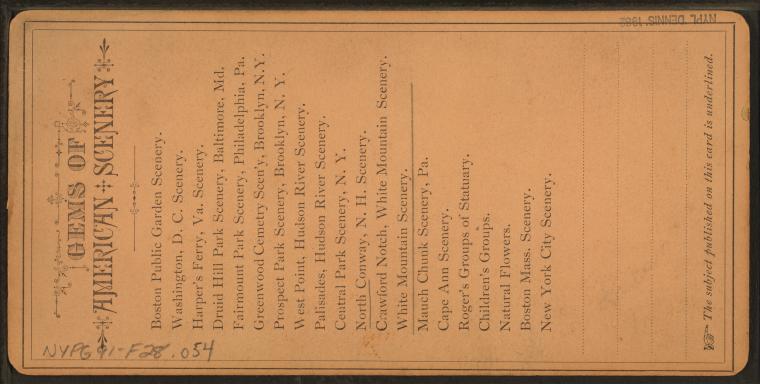 GEMS OF
AMERICAN SCENERY
Boston Public Garden Scenery.
Washington, D. C. Scenery.
Harper's Ferry, Va. Scenery.
Druid Hill Park Scenery, Baltimore, Md.
Fairmount Park Scenery, Philadelphia, Pa.
Greenwood Cemetry Scen'y, Brooklyn, N.Y.
Prospect Park Scenery, Brooklyn, N. Y.
West Point, Hudson River Scenery.
Palisades, Hudson River Scenery.
Central Park Scenery, N. Y.
North Conway, N. H. Scenery.
Crawford Notch, White Mountain Scenery.
White Mountain Scenery.
Mauch Chunk Scenery, Pa.
Cape Ann Scenery.
Roger's Groups of Statuary.
Children's Groups.
Natural Flowers.
Boston Mass. Scenery.
New York City Scenery.
The subject published on this card is underlined.
NYPG 91-F28.054
NYPL DENNIS 1982